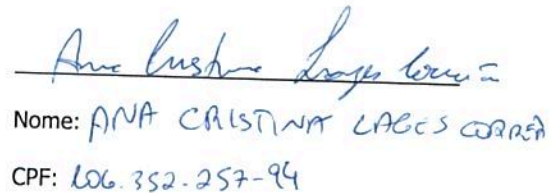 Ana Cristina Lages Corrêa
Nome: ANA CRISTINA LAGES CORRÊA
CPF: 106.352.257-94